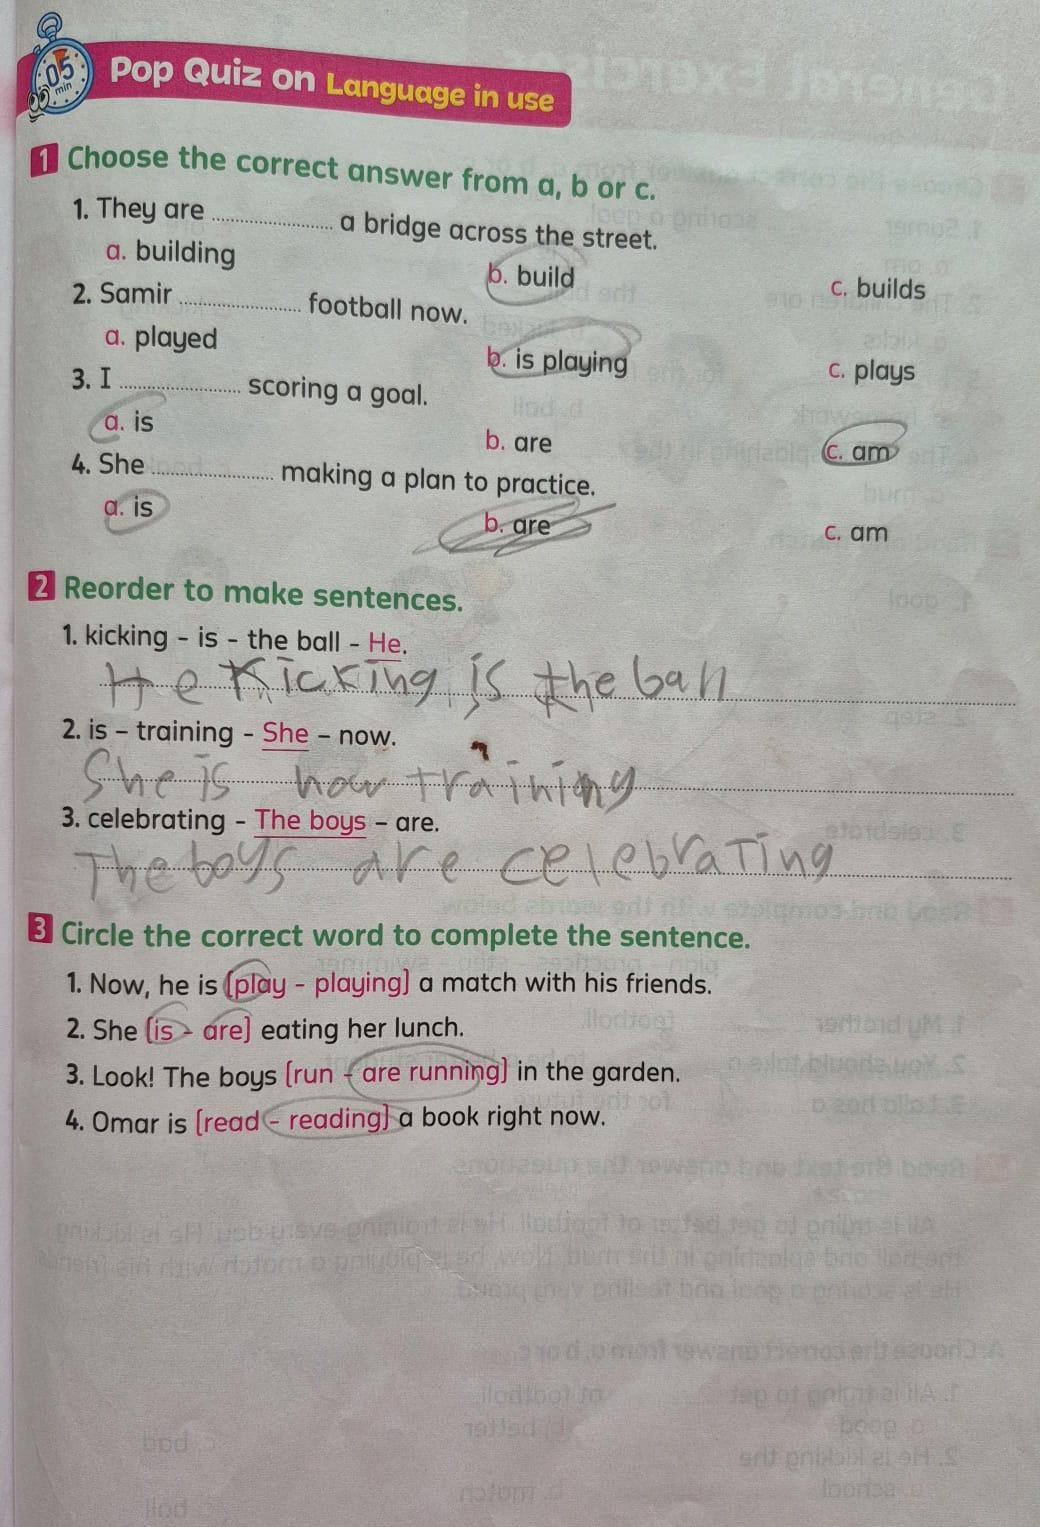 05
min
Pop Quiz on Language in use
1 Choose the correct answer from a, b or c.
1. They are ........................ a bridge across the street.
a. building b. build c. builds
2. Samir ........................ football now.
a. played b. is playing c. plays
3. I ........................ scoring a goal.
a. is b. are c. am
4. She ........................ making a plan to practice.
a. is b. are c. am
2 Reorder to make sentences.
1. kicking - is - the ball - He.
He kicking is the ball
2. is - training - She - now.
She is now training
3. celebrating - The boys - are.
The boys are celebrating
3 Circle the correct word to complete the sentence.
1. Now, he is (play - playing) a match with his friends.
2. She (is - are) eating her lunch.
3. Look! The boys (run - are running) in the garden.
4. Omar is (read - reading) a book right now.